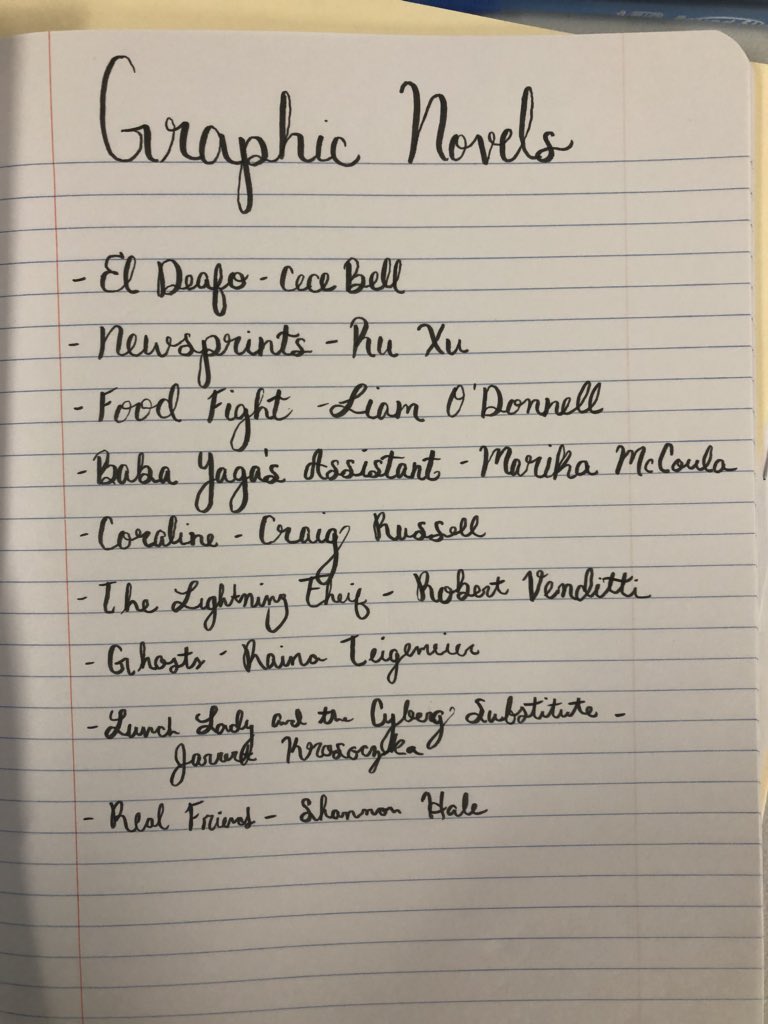 Graphic Novels
- El Deafo - Cece Bell
- Newsprints - Ru Xu
- Food Fight - Liam O'Donnell
- Baba Yaga's Assistant - Marika McCoula
- Coraline - Craig Russell
- The Lightning Theif - Robert Venditti
- Ghosts - Raina Teigemeier
- Lunch Lady and the Cyberg Substitute -
Jarred Krosoczka
- Real Friends - Shannon Hale